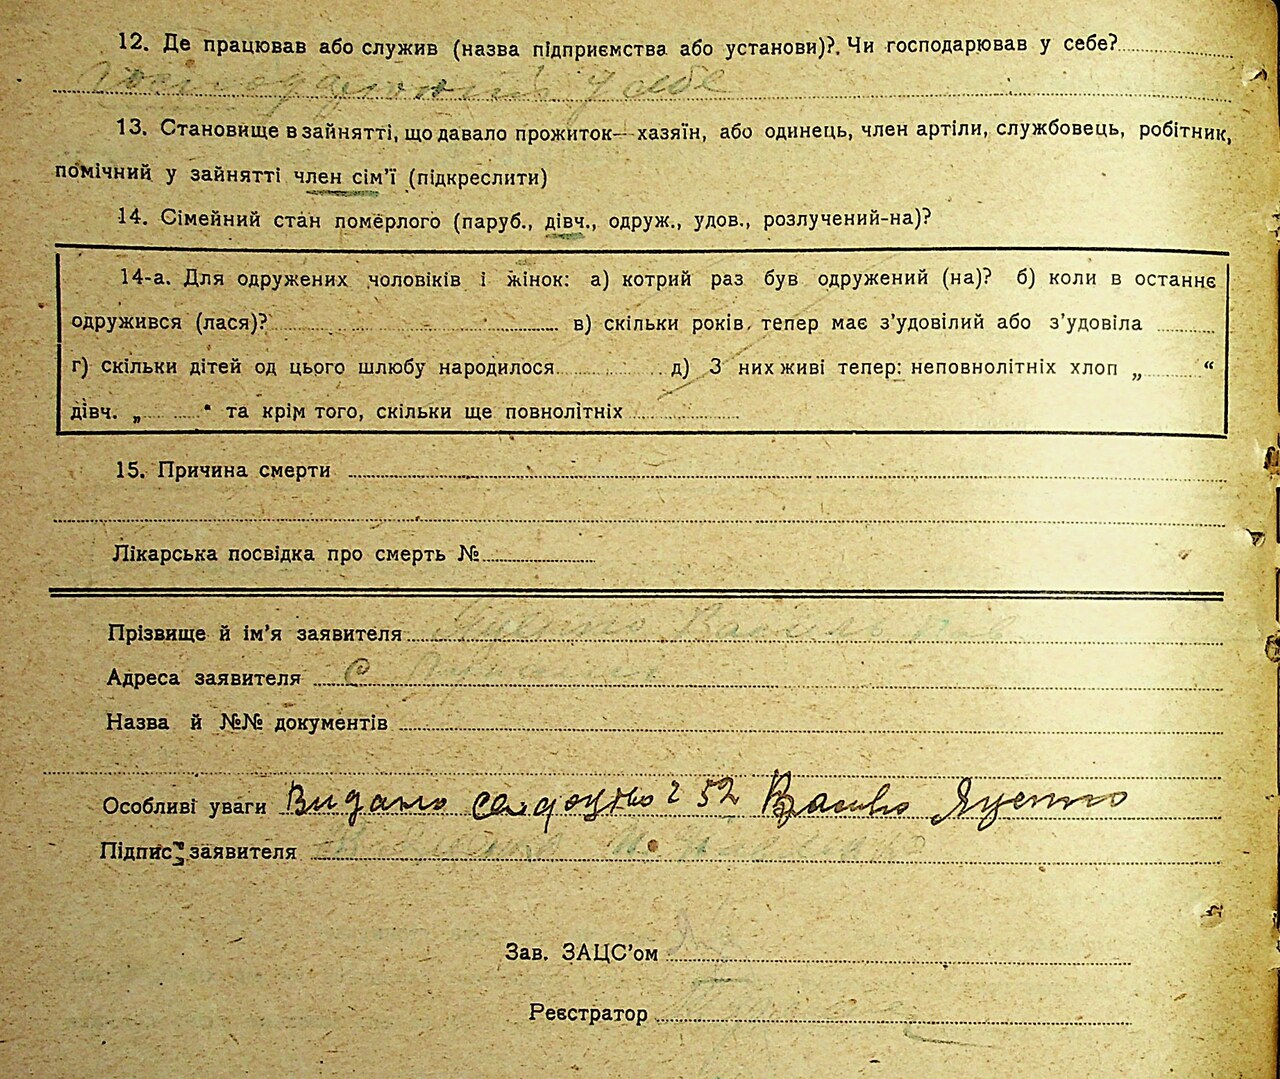 12. Де працював або служив (назва підприємства або установи)?. Чи господарював у себе?
у себе
13. Становище в зайнятті, що давало прожиток—хазяїн, або одинець, член артіли, службовець, робітник,
помічний у зайнятті член сім'ї (підкреслити)
14. Сімейний стан померлого (паруб., дівч., одруж., удов., розлучений-на)?
14-а. Для одружених чоловіків і жінок: а) котрий раз був одружений (на)? б) коли в останнє
одружився (лася)? в) скільки років тепер має з'удовілий або з'удовіла
г) скільки дітей од цього шлюбу народилося д) З них живі тепер: неповнолітніх хлоп „ “
дівч. „ “ та крім того, скільки ще повнолітніх
15. Причина смерти
Лікарська посвідка про смерть №
Прізвище й ім'я заявителя
Адреса заявителя с
Назва й №№ документів
Особливі уваги Видано 52
Підпис заявителя
Зав. ЗАЦС'ом
Реєстратор